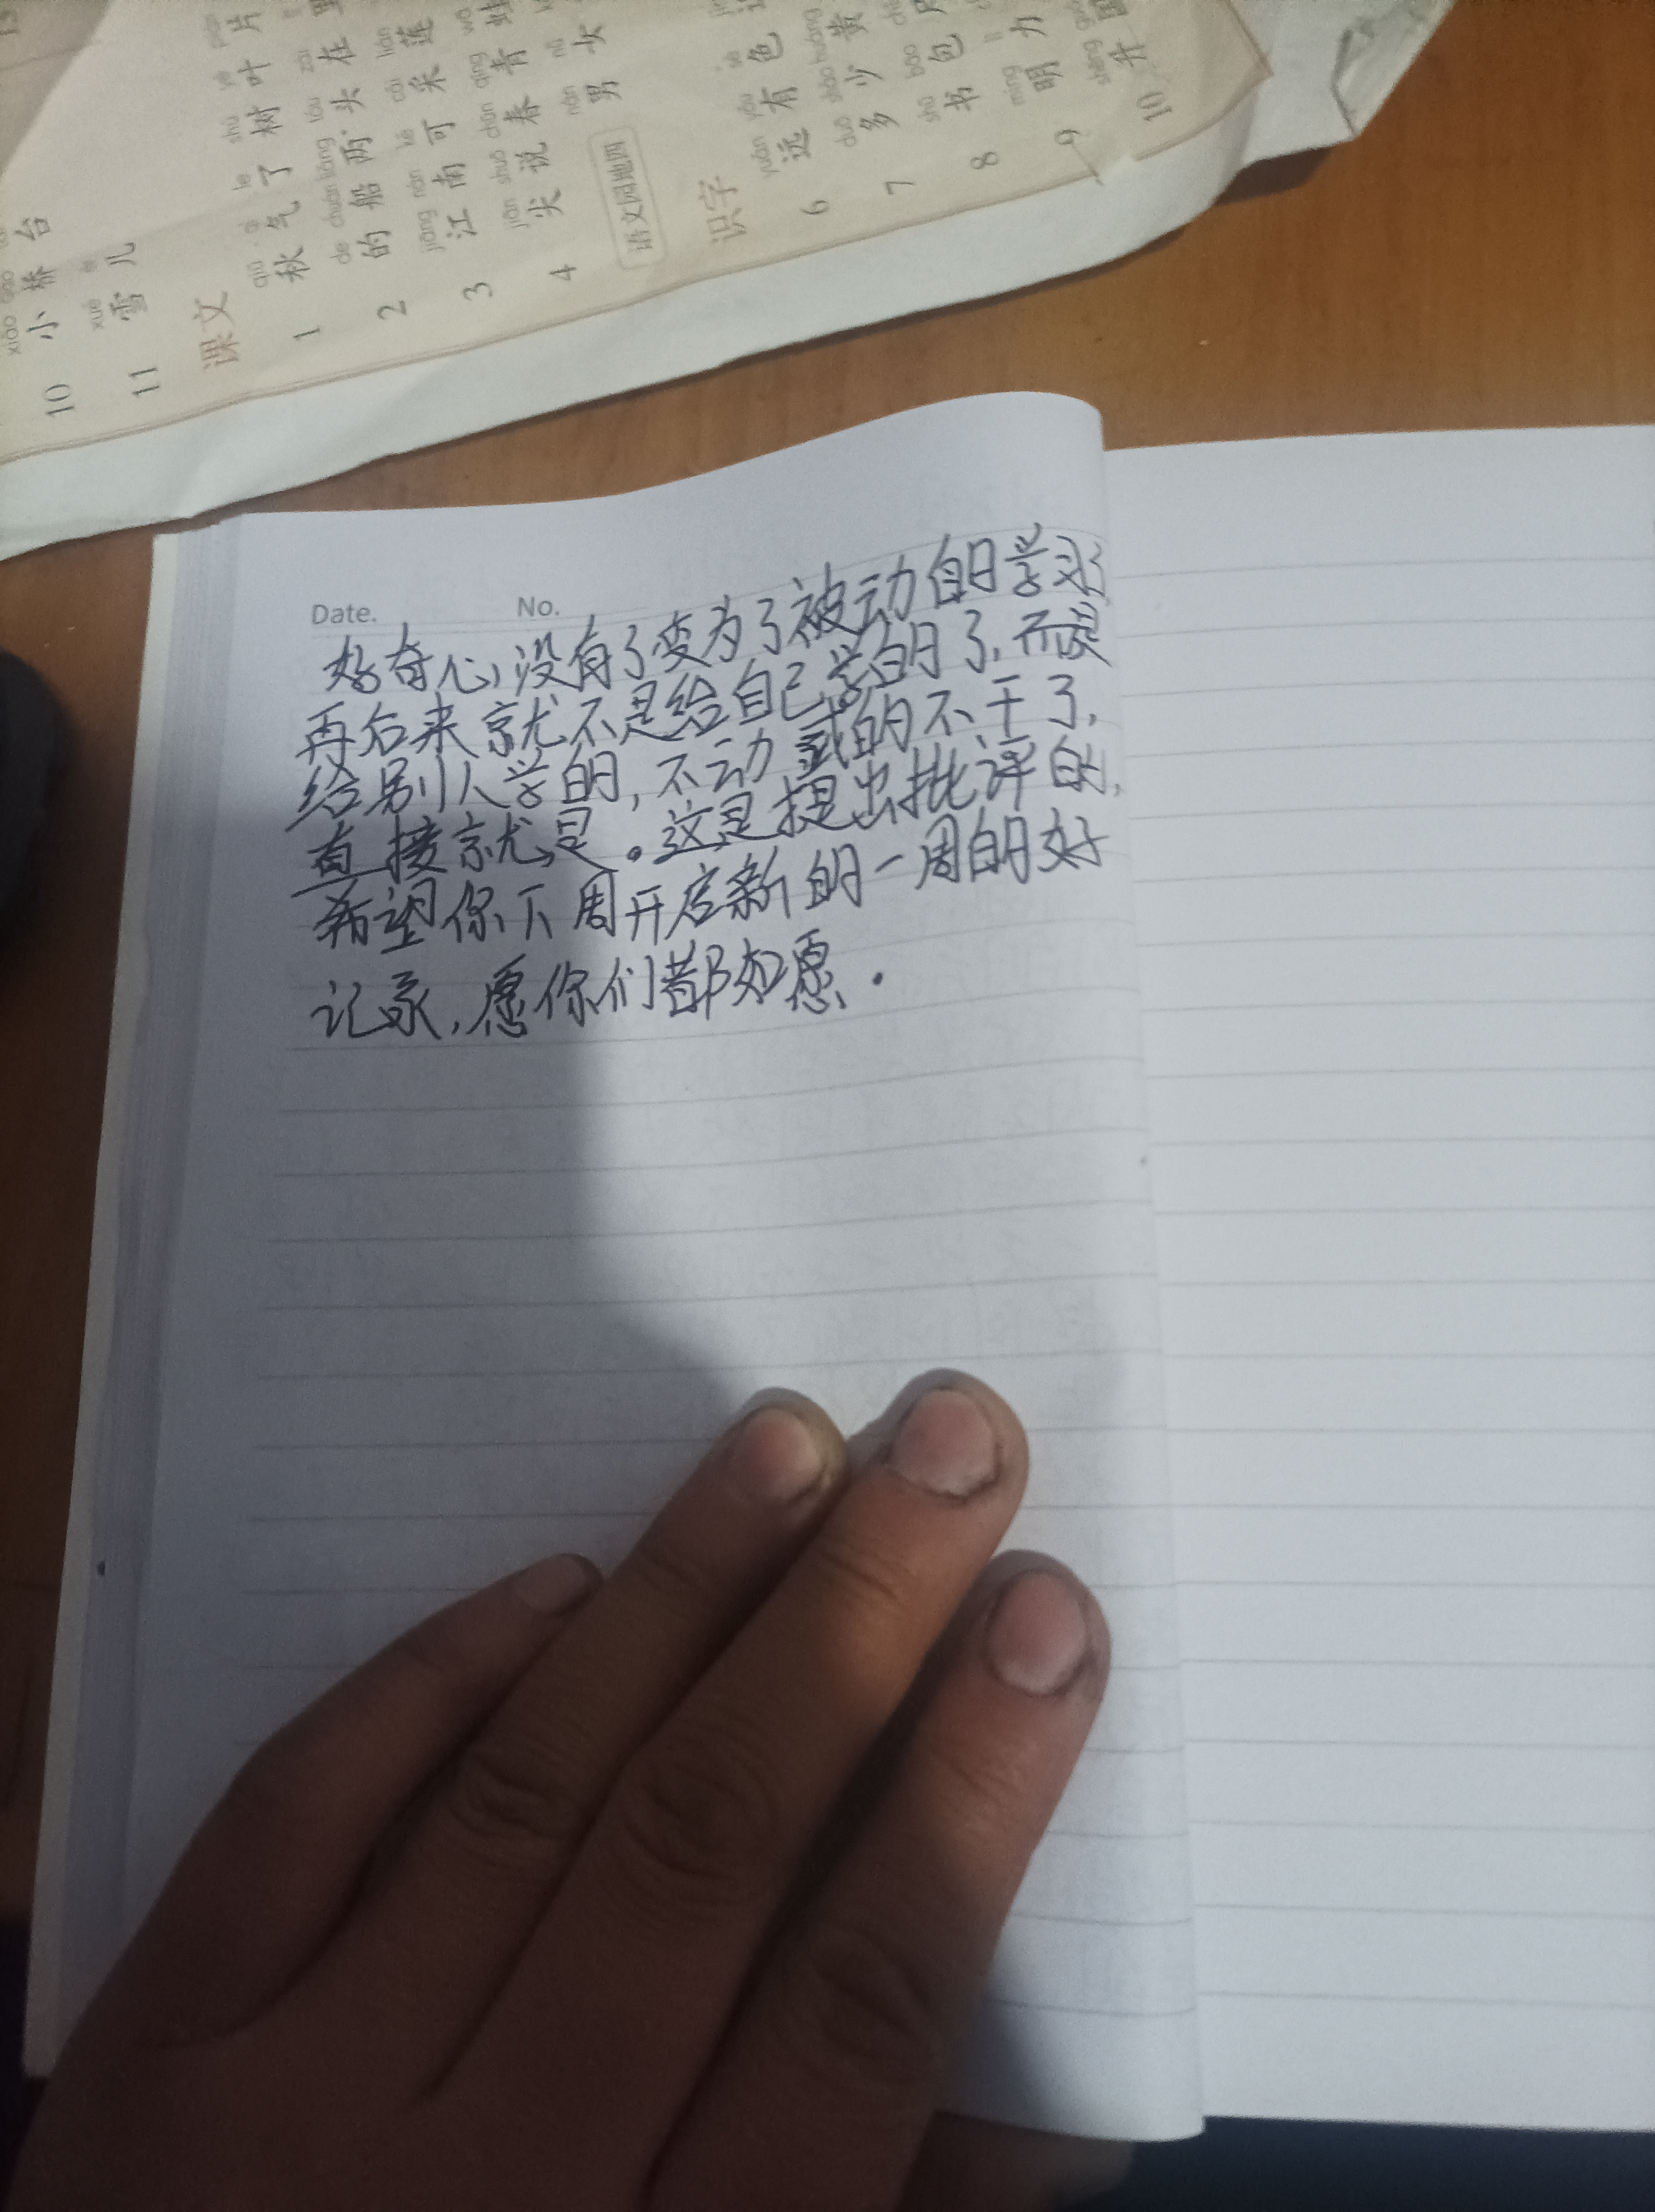 10 小桥台
xiǎo qiáo
11 雪儿
xuě ér
课文
qiū qì le shù yè piàn
1 秋气了树叶片
de chuán liǎng tóu zài
2 的船两头在里
jiāng nán kě cǎi lián
3 江南可采莲
jiān shuō chūn qīng wā
4 尖说春青蛙
nán nǚ
男女
语文园地四
识字
yuǎn yǒu sè
6 远有色
duō shǎo huáng
7 多少黄
shū bāo
8 书包
míng lì
9 明力
shēng guó
10 升国
Date. No.
好奇心,没有了变为了被动的学习
再后来就不是给自己学的了,而是
给别人学的,不动 的不干了,
直接就是。这是提出批评的,
希望你下周开启新的一周的好
记录,愿你们都如愿.